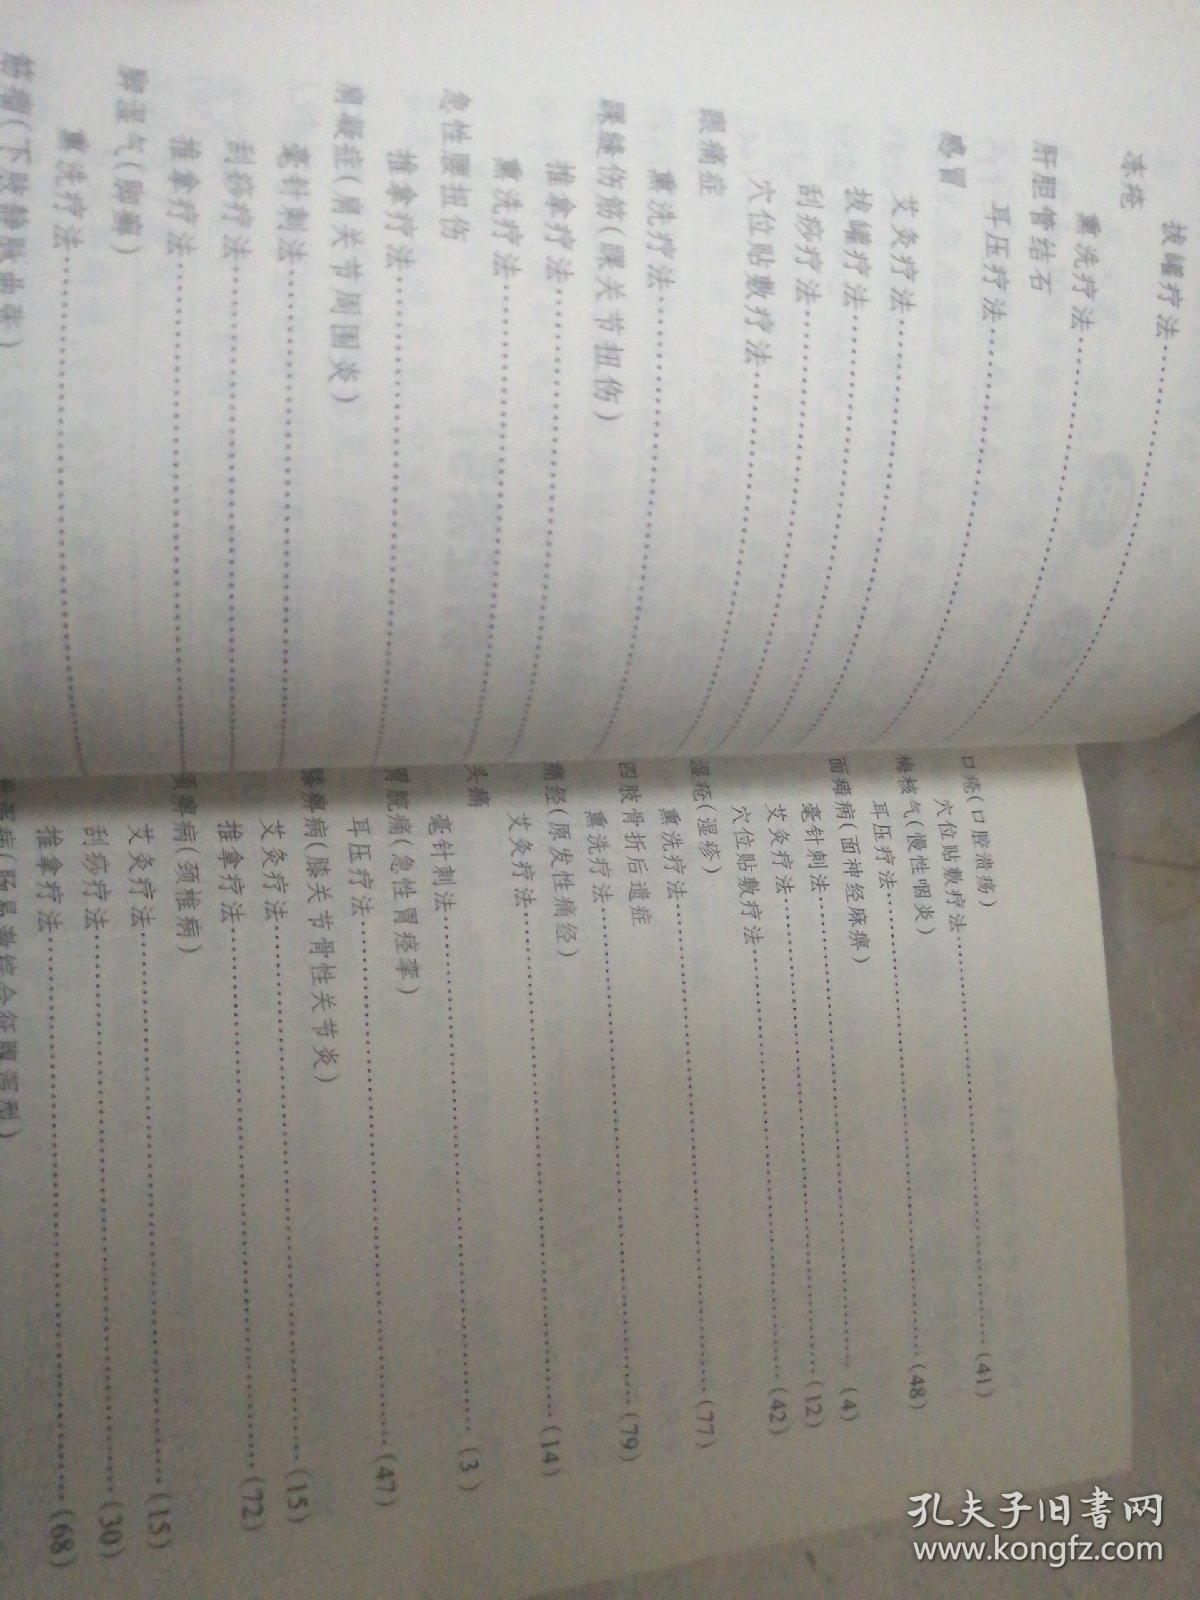 拔罐疗法
冻疮
熏洗疗法
肝胆管结石
耳压疗法
感冒
艾灸疗法
拔罐疗法
刮痧疗法
穴位贴敷疗法
跟痛症
熏洗疗法
踝缝伤筋(踝关节扭伤)
推拿疗法
熏洗疗法
急性腰扭伤
推拿疗法
肩凝症(肩关节周围炎)
毫针刺法
刮痧疗法
推拿疗法
脚湿气(脚癣)
熏洗疗法
筋瘤(下肢静脉曲张)
口疮(口腔溃疡)
穴位贴敷疗法 (41)
梅核气(慢性咽炎)
耳压疗法 (48)
面瘫病(面神经麻痹)
毫针刺法 (4)
艾灸疗法 (12)
穴位贴敷疗法 (42)
湿疮(湿疹)
熏洗疗法 (77)
四肢骨折后遗症
熏洗疗法 (79)
痛经(原发性痛经)
艾灸疗法 (14)
头痛
毫针刺法 (3)
胃脘痛(急性胃痉挛)
耳压疗法 (47)
膝痹病(膝关节骨性关节炎)
艾灸疗法 (15)
推拿疗法 (72)
项痹病(颈椎病)
艾灸疗法 (15)
刮痧疗法 (30)
推拿疗法 (68)
泄病(肠易激综合征腹泻型)
孔夫子旧书网
www.kongfz.com